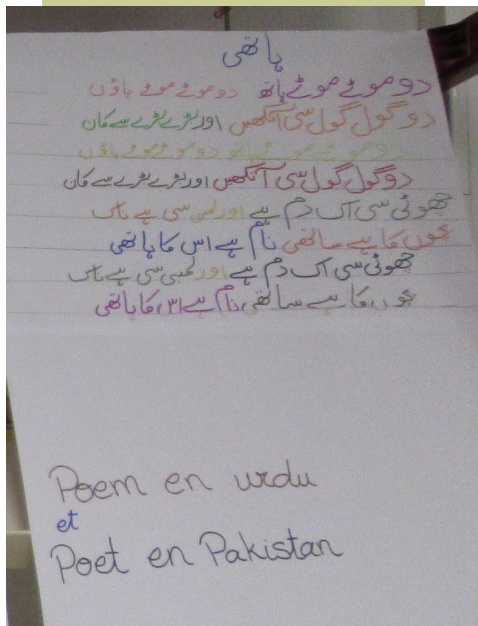 ہاتھی
دو موٹے موٹے ہاتھ دو موٹے موٹے پاؤں
دو گول گول سی آنکھیں اور بڑے بڑے سے کان
دو موٹے موٹے ہاتھ دو موٹے موٹے پاؤں
دو گول گول سی آنکھیں اور بڑے بڑے سے کان
چھوٹی سی اک دم ہے اور لمبی سی ہے ناک
بچوں کا ہے ساتھی نام ہے اس کا ہاتھی
چھوٹی سی اک دم ہے اور لمبی سی ہے ناک
بچوں کا ہے ساتھی نام ہے اس کا ہاتھی
Poem en urdu
et
Poet en Pakistan